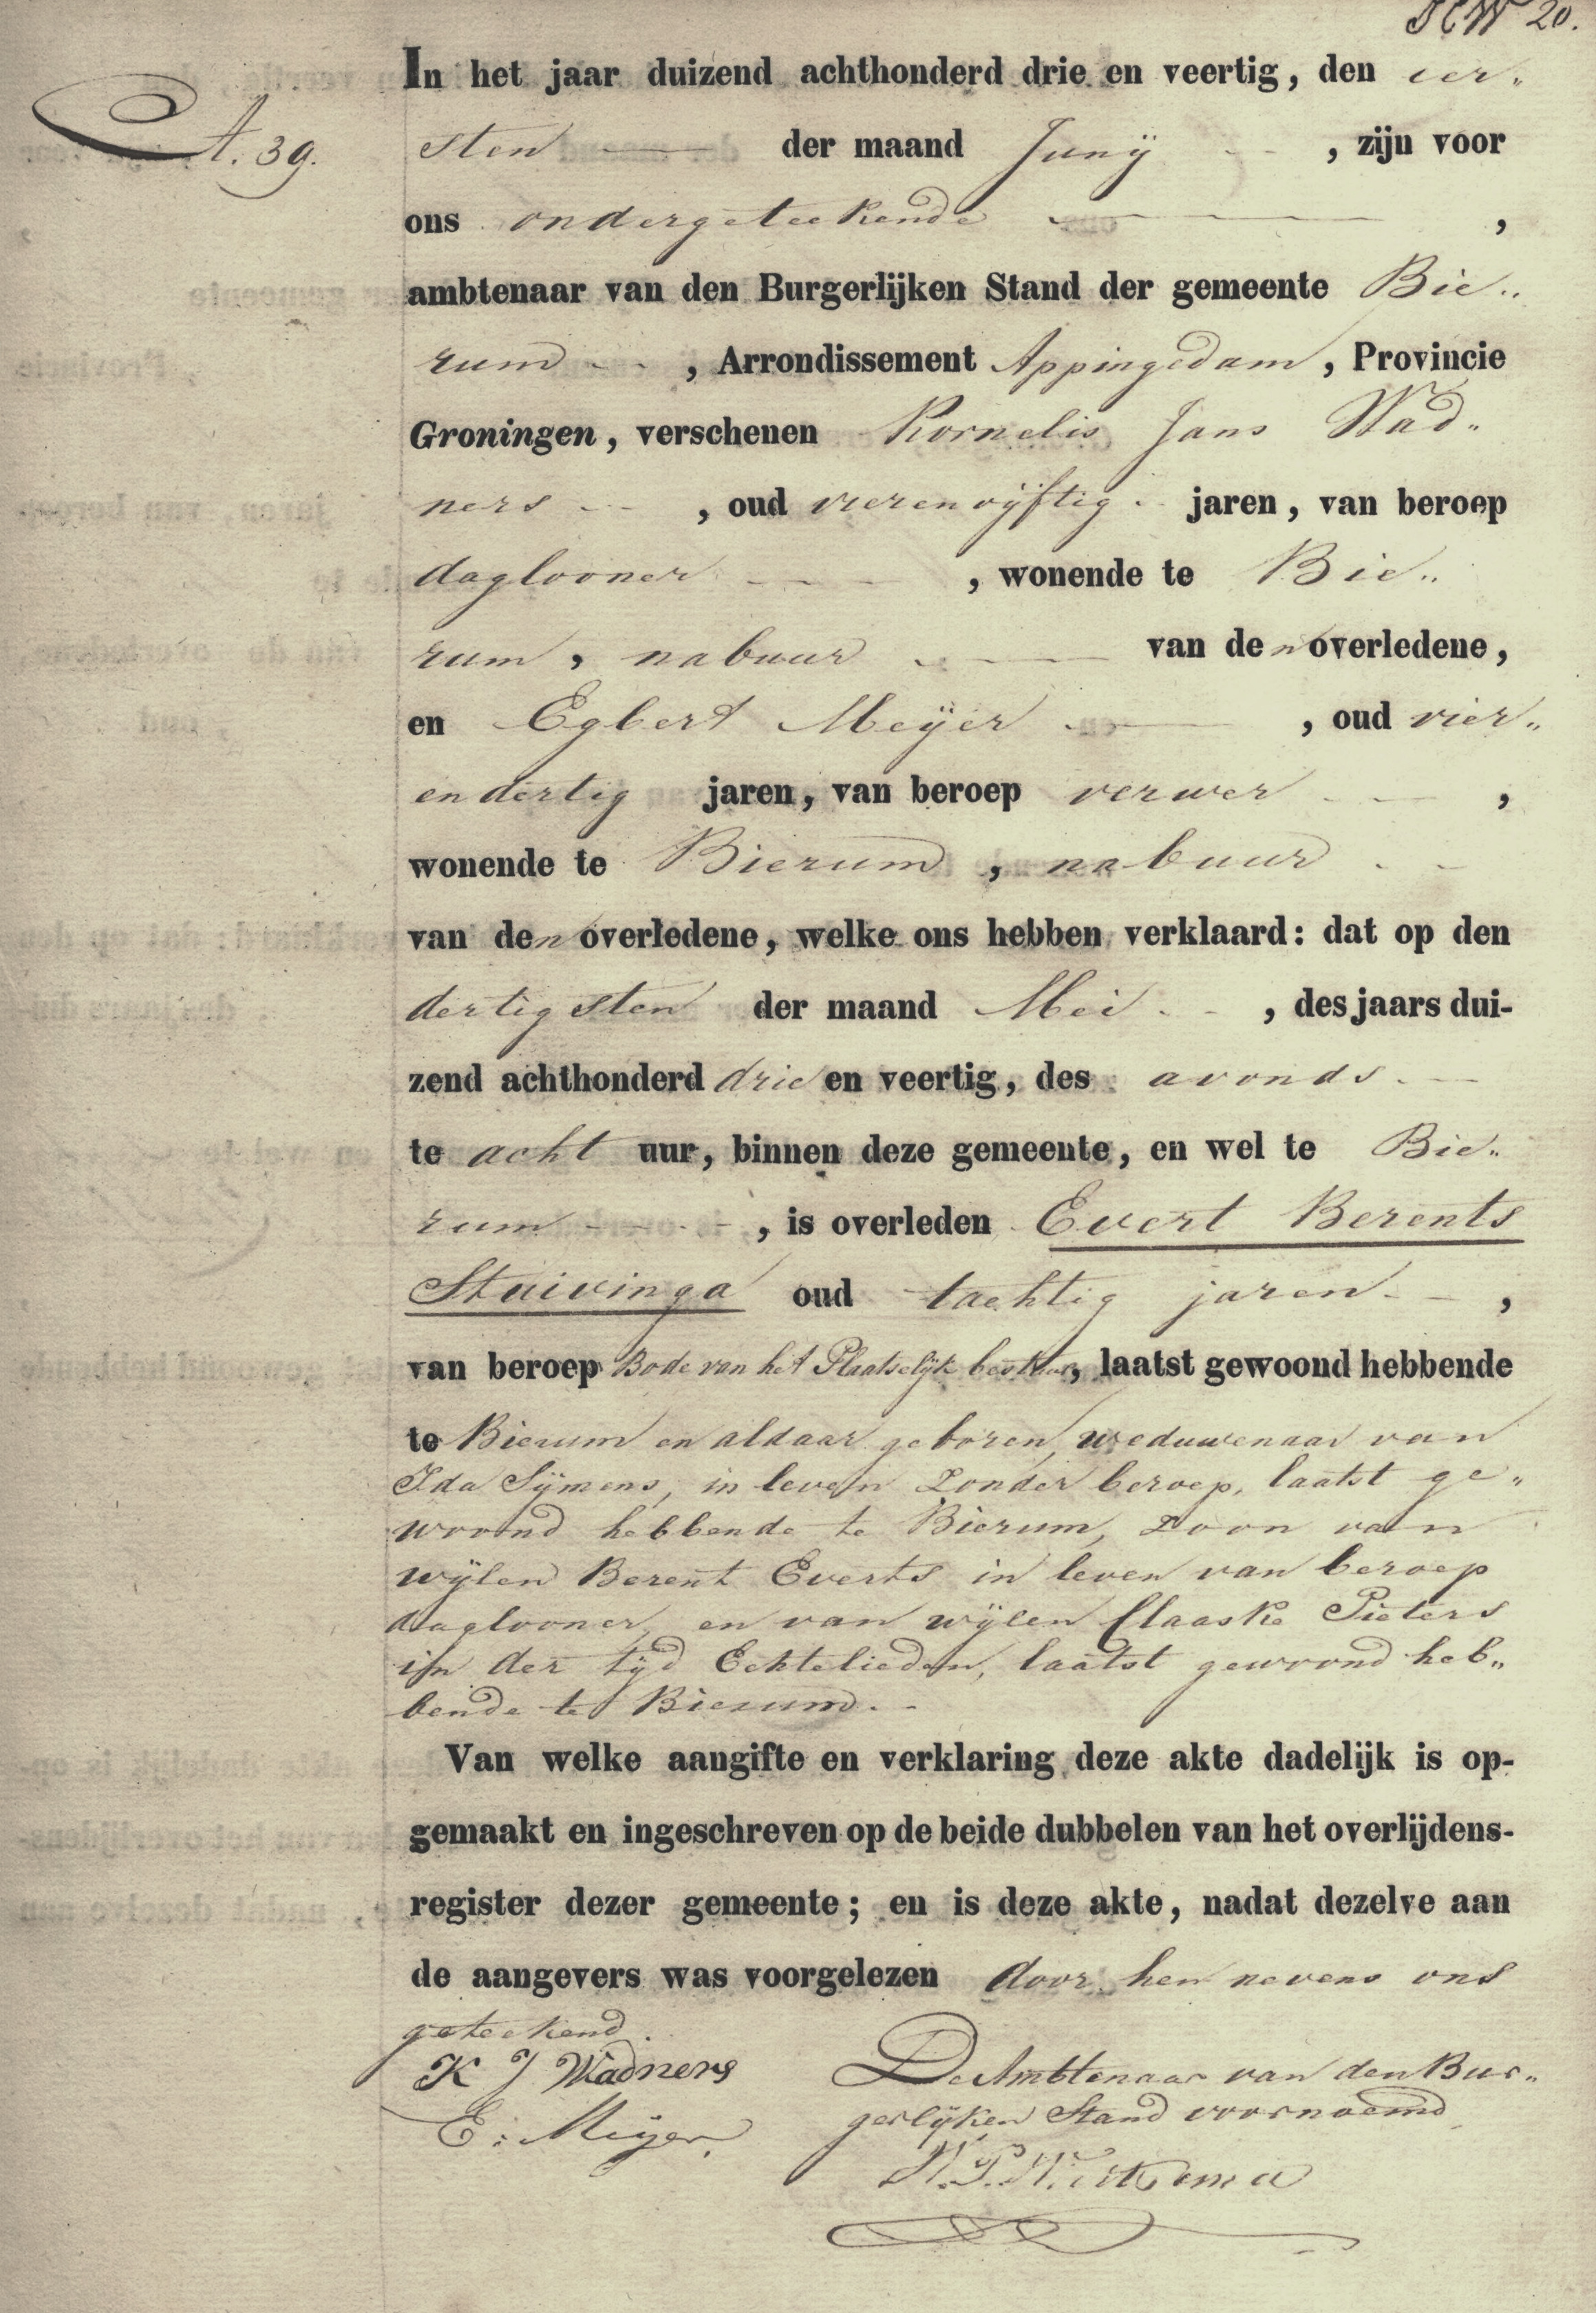 20.
In het jaar duizend achthonderd drie en veertig, den eer„
A. 39.
sten der maand Junij, zijn voor
ons ondergeteekende,
ambtenaar van den Burgerlijken Stand der gemeente Bie„
rum, Arrondissement Appingedam, Provincie
Groningen, verschenen Kornelis Jans Wad„
ners, oud vierenvijftig jaren, van beroep
daglooner, wonende te Bie„
rum, nabuur van den overledene,
en Egbert Meijer, oud vier„
endertig jaren, van beroep verwer,
wonende te Bierum, nabuur
van den overledene, welke ons hebben verklaard: dat op den
dertigsten der maand Mei, des jaars dui-
zend achthonderd drie en veertig, des avonds
te acht uur, binnen deze gemeente, en wel te Bie„
rum, is overleden Evert Berents
Stuivinga oud tachtig jaren,
van beroep Bode van het Plaatselijk bestuur, laatst gewoond hebbende
te Bierum en aldaar geboren, weduwenaar van
Ida Sijmens, in leven zonder beroep, laatst ge„
woond hebbende te Bierum, zoon van
wijlen Berent Everts in leven van beroep
daglooner, en van wijlen Claaske Pieters
in der tijd Echtelieden, laatst gewoond heb„
bende te Bierum.
Van welke aangifte en verklaring deze akte dadelijk is op-
gemaakt en ingeschreven op de beide dubbelen van het overlijdens-
register dezer gemeente; en is deze akte, nadat dezelve aan
de aangevers was voorgelezen door hen nevens ons
geteekend.
K J Wadners
De Ambtenaar van den Bur„
E: Meijer.
gerlijken Stand voornoemd